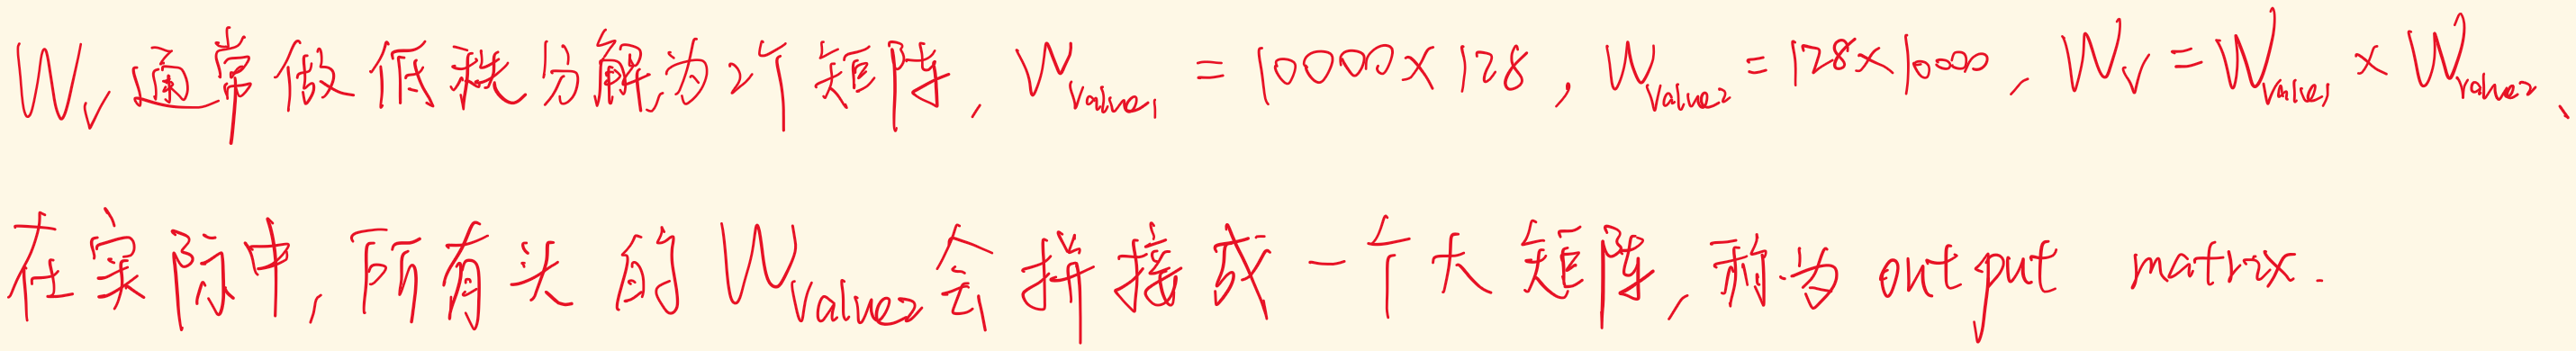 W_V 通常做低秩分解为2个矩阵, W_value1 = 10000×128, W_value2 = 128×10000, W_V = W_value1 × W_value2、
在实际中, 所有头的 W_value2 会拼接成一个大矩阵, 称为 output matrix.